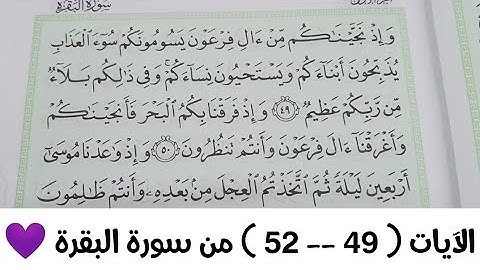 سورة البقرة
وَإِذْ نَجَّيْنَٰكُم مِّنْ ءَالِ فِرْعَوْنَ يَسُومُونَكُمْ سُوٓءَ ٱلْعَذَابِ
يُذَبِّحُونَ أَبْنَآءَكُمْ وَيَسْتَحْيُونَ نِسَآءَكُمْ ۚ وَفِى ذَٰلِكُم بَلَآءٌ
مِّن رَّبِّكُمْ عَظِيمٌ ٤٩ وَإِذْ فَرَقْنَا بِكُمُ ٱلْبَحْرَ فَأَنجَيْنَٰكُمْ
وَأَغْرَقْنَآ ءَالَ فِرْعَوْنَ وَأَنتُمْ تَنظُرُونَ ٥٠ وَإِذْ وَٰعَدْنَا مُوسَىٰٓ
أَرْبَعِينَ لَيْلَةً ثُمَّ ٱتَّخَذْتُمُ ٱلْعِجْلَ مِنۢ بَعْدِهِۦ وَأَنتُمْ ظَٰلِمُونَ
الآيات ( 49 -- 52 ) من سورة البقرة 💜